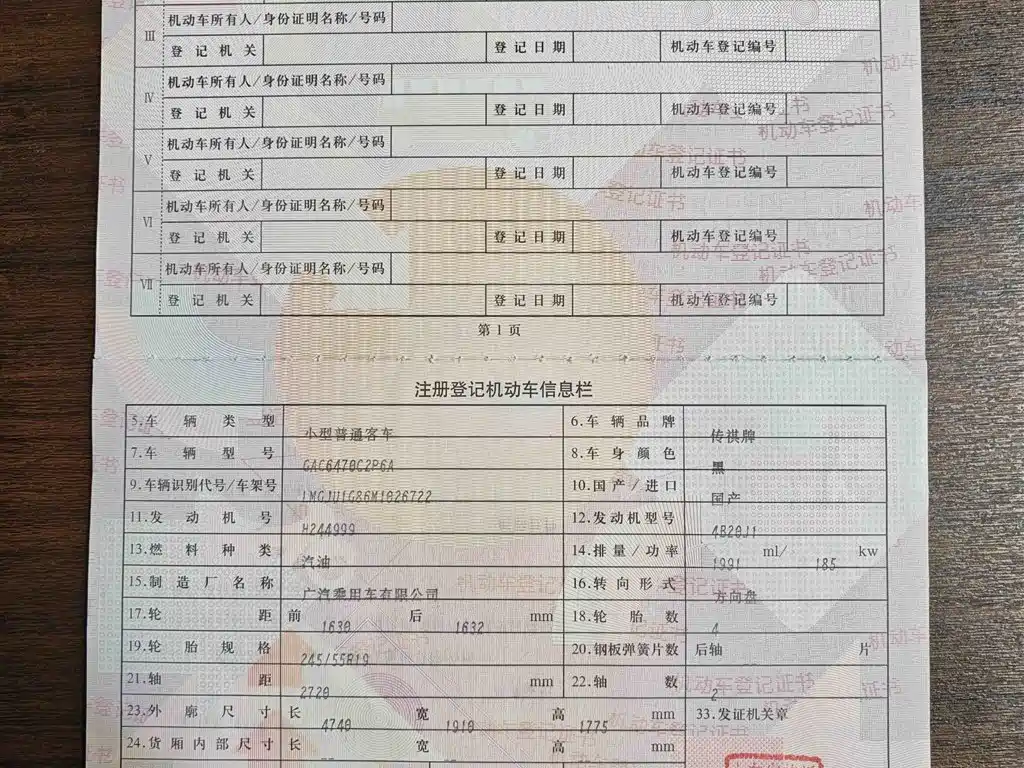 Ⅲ 机动车所有人/身份证明名称/号码
登记机关 登记日期 机动车登记编号
Ⅳ 机动车所有人/身份证明名称/号码
登记机关 登记日期 机动车登记编号
Ⅴ 机动车所有人/身份证明名称/号码
登记机关 登记日期 机动车登记编号
Ⅵ 机动车所有人/身份证明名称/号码
登记机关 登记日期 机动车登记编号
Ⅶ 机动车所有人/身份证明名称/号码
登记机关 登记日期 机动车登记编号
第1页
注册登记机动车信息栏
5.车辆类型 小型普通客车 6.车辆品牌 传祺牌
7.车辆型号 GAC6470C2P6A 8.车身颜色 黑
9.车辆识别代号/车架号 LMGJU1G86M1026722 10.国产/进口 国产
11.发动机号 H244999 12.发动机型号 4B20J1
13.燃料种类 汽油 14.排量/功率 1991 ml/ 185 kw
15.制造厂名称 广汽乘用车有限公司 16.转向形式 方向盘
17.轮距 前 1630 后 1632 mm 18.轮胎数 4
19.轮胎规格 245/55R19 20.钢板弹簧片数 后轴 片
21.轴距 2720 mm 22.轴数 2
23.外廓尺寸 长 4740 宽 1910 高 1775 mm 33.发证机关章
24.货厢内部尺寸 长 宽 高 mm